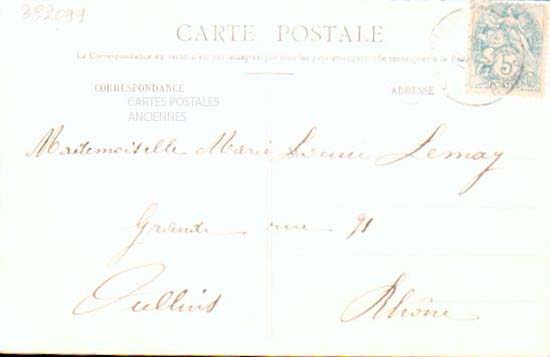 382099
CARTE POSTALE
La Correspondance au recto n'est pas acceptée par tous les pays étrangers (Se renseigner à la Poste)
CORRESPONDANCE
ADRESSE
CARTES POSTALES
ANCIENNES
5
Mademoiselle Marie Louise Lemay
Grande rue 91
Oullins Rhône